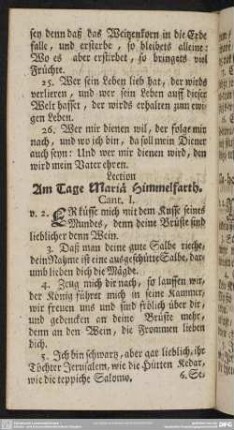 sey denn daß das Weitzenkorn in die Erde
falle, und ersterbe, so bleibets alleine:
Wo es aber erstirbet, so bringets viel
Früchte.
25. Wer sein Leben lieb hat, der wirds
verlieren, und wer sein Leben auff dieser
Welt hasset, der wirds erhalten zum ewi-
gen Leben.
26. Wer mir dienen wil, der folge mir
nach, und wo ich bin, da soll mein Diener
auch seyn: Und wer mir dienen wird, den
wird mein Vater ehren.
Lection
Am Tage Mariä Himmelfarth.
Cant. I.
v. 2. ER küsse mich mit dem Kusse seines
Mundes, denn deine Brüste sind
lieblicher denn Wein.
3. Daß man deine gute Salbe rieche,
dein Nahme ist eine ausgeschütte Salbe, dar-
umb lieben dich die Mägde.
4. Zeug mich dir nach, so lauffen wir,
der König führet mich in seine Kammer,
wir freuen uns und sind frölich über dir,
und gedencken an deine Brüste mehr,
denn an den Wein, die Frommen lieben
dich.
5. Ich bin schwartz, aber gar lieblich, ihr
Töchter Jerusalem, wie die Hütten Kedar,
wie die teppiche Salomo.
6. Se,